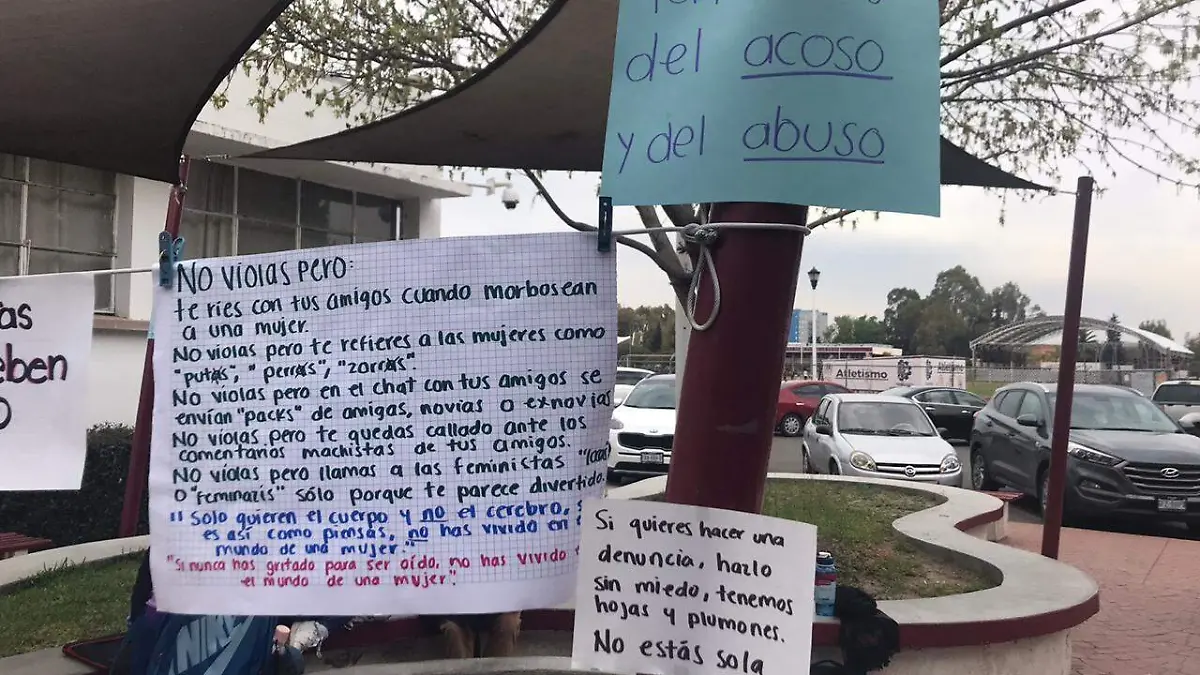 del acoso
y del abuso
as
eben
O
NO VIOLAS PERO:
te ríes con tus amigos cuando morbosean
a una mujer.
NO violas pero te refieres a las mujeres como
"putas", "perras", "zorras".
NO violas pero en el chat con tus amigos se
envían "packs" de amigas, novias o exnovias
NO violas pero te quedas callado ante los
comentarios machistas de tus amigos.
NO violas pero llamas a las feministas "locas"
o "feminazis" sólo porque te parece divertido.
"Solo quieren el cuerpo y no el cerebro,
es así como piensas, no has vivido en
mundo de una mujer."
"Si nunca has gritado para ser oído, no has vivido
el mundo de una mujer".
Si quieres hacer una
denuncia, hazlo
sin miedo, tenemos
hojas y plumones.
No estás sola
Atletismo
NIKE